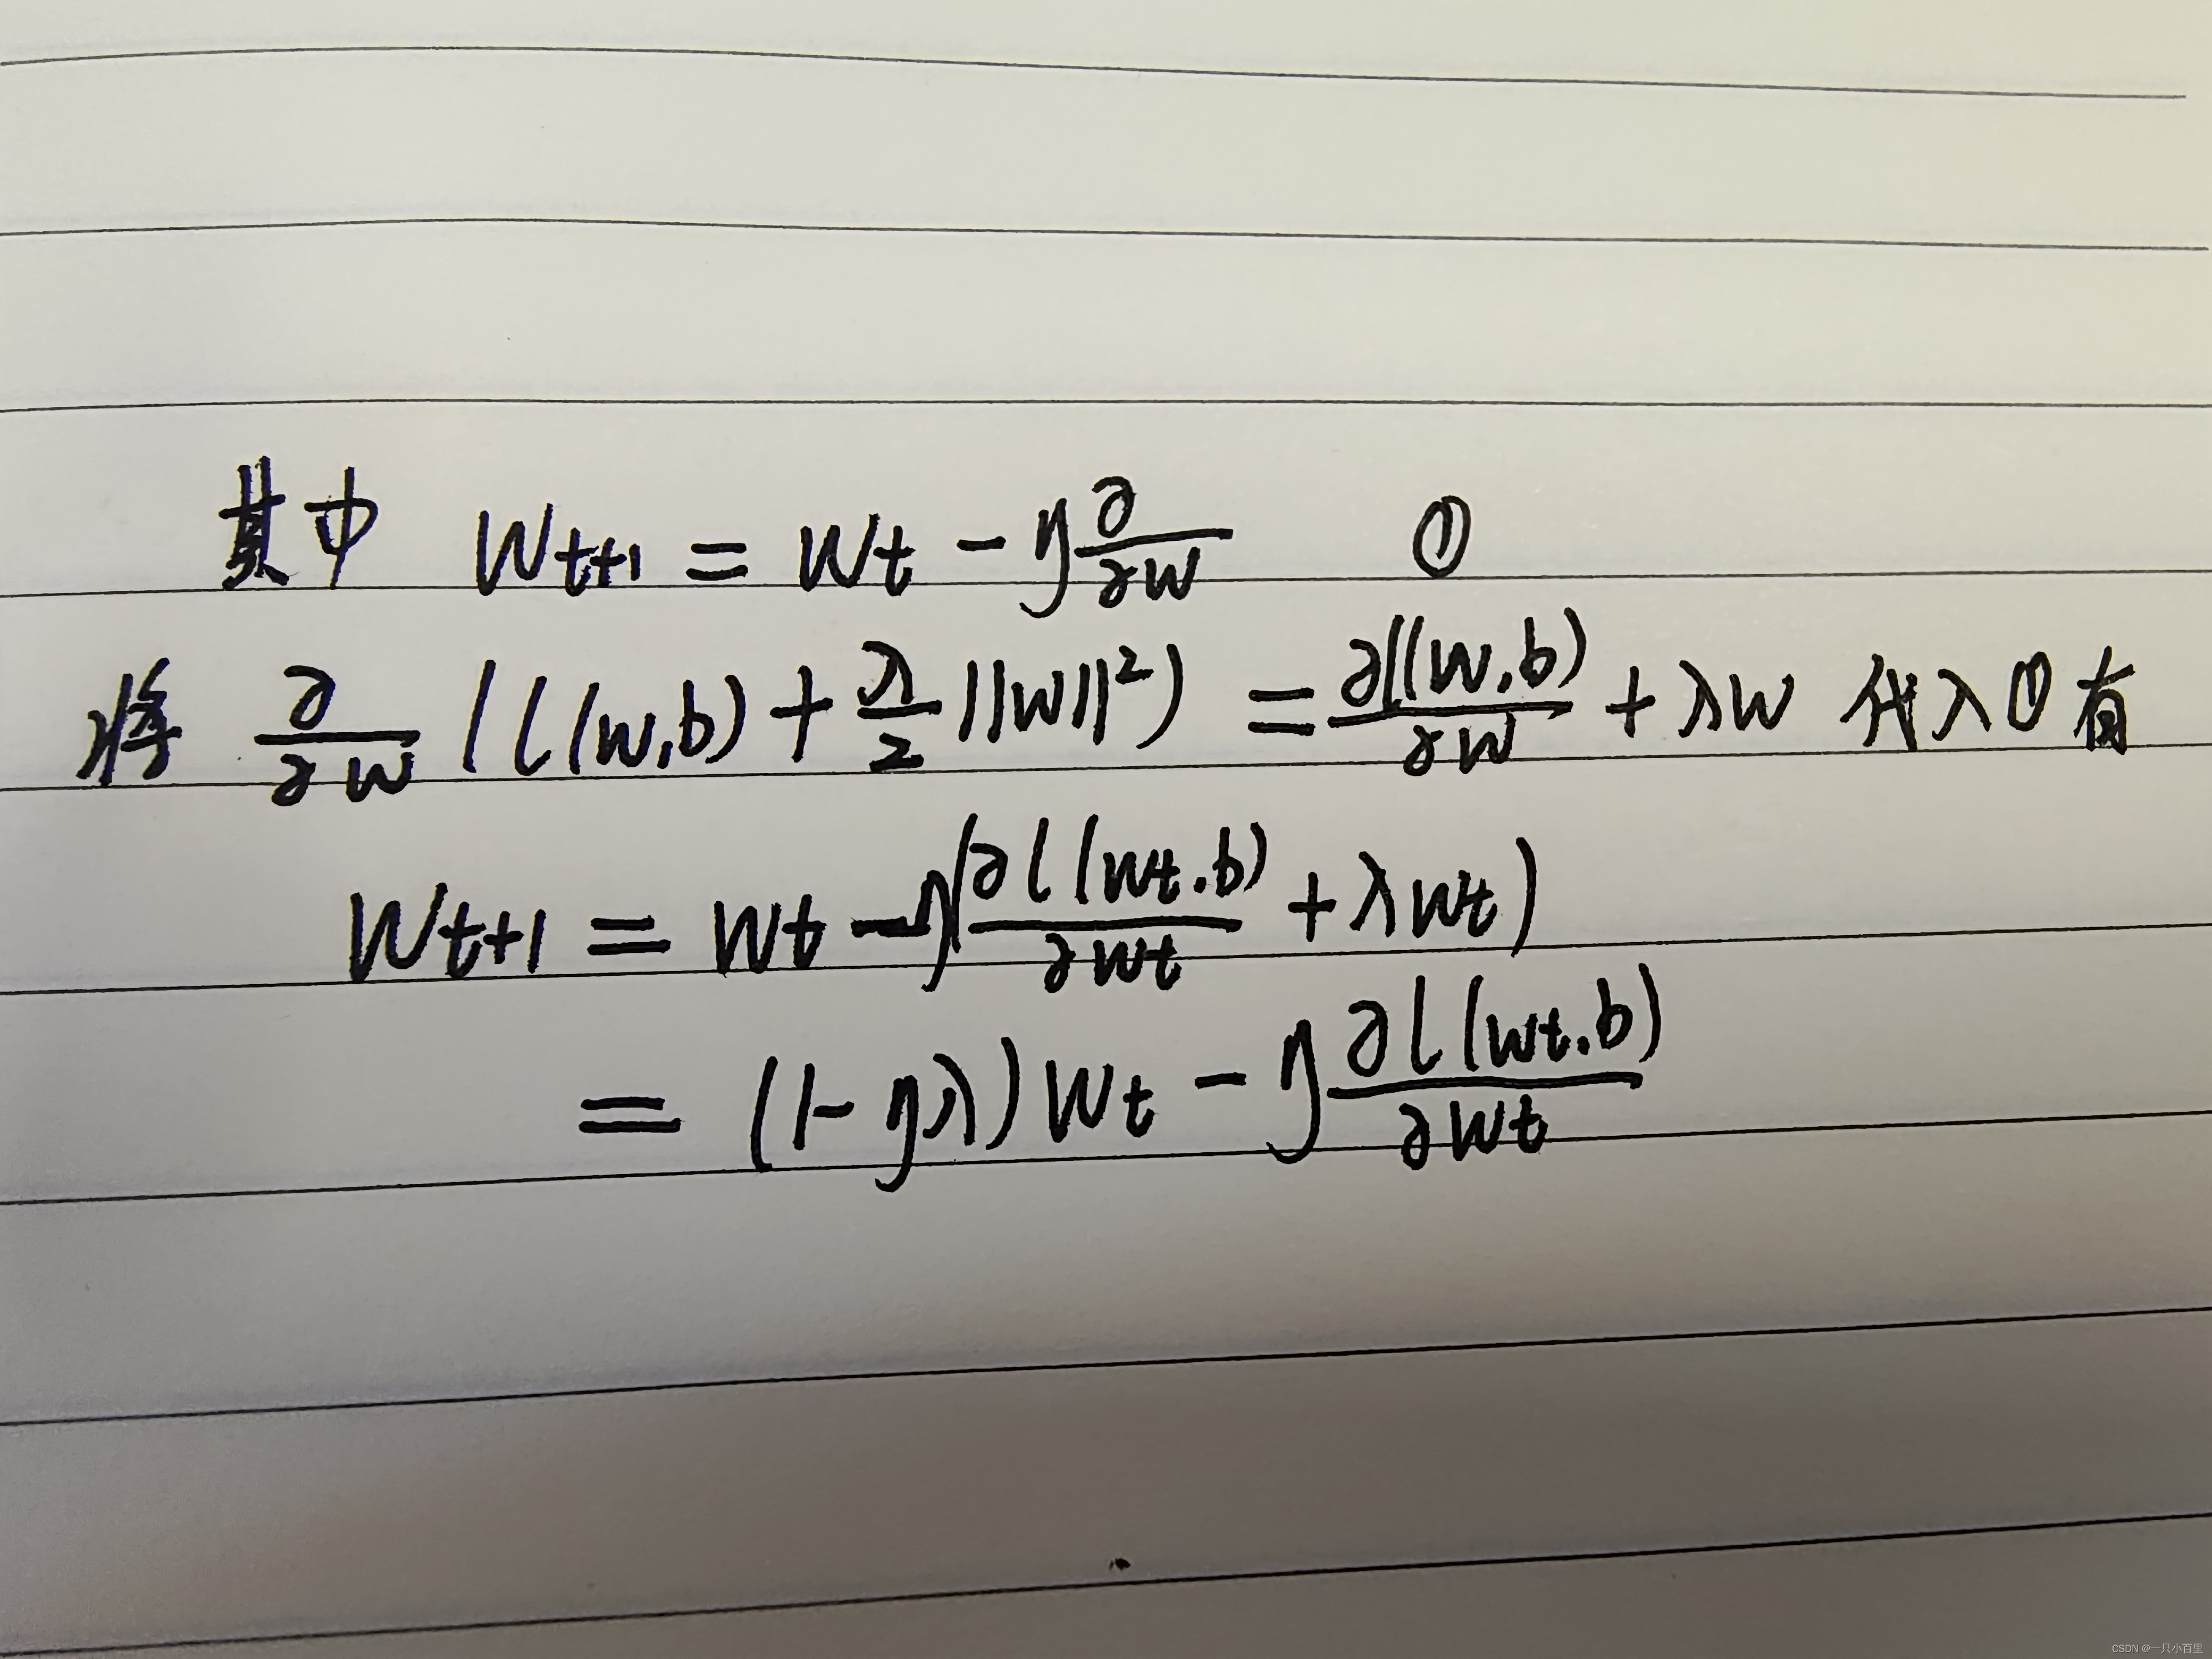 其中 Wt+1 = Wt - η ∂/∂W ①
将 ∂/∂W (l(W,b) + λ/2 ||W||²) = ∂l(W,b)/∂W + λW 代入①有
Wt+1 = Wt - η(∂l(Wt,b)/∂Wt + λWt)
= (1-ηλ)Wt - η ∂l(Wt,b)/∂Wt
CSDN @一只小百里